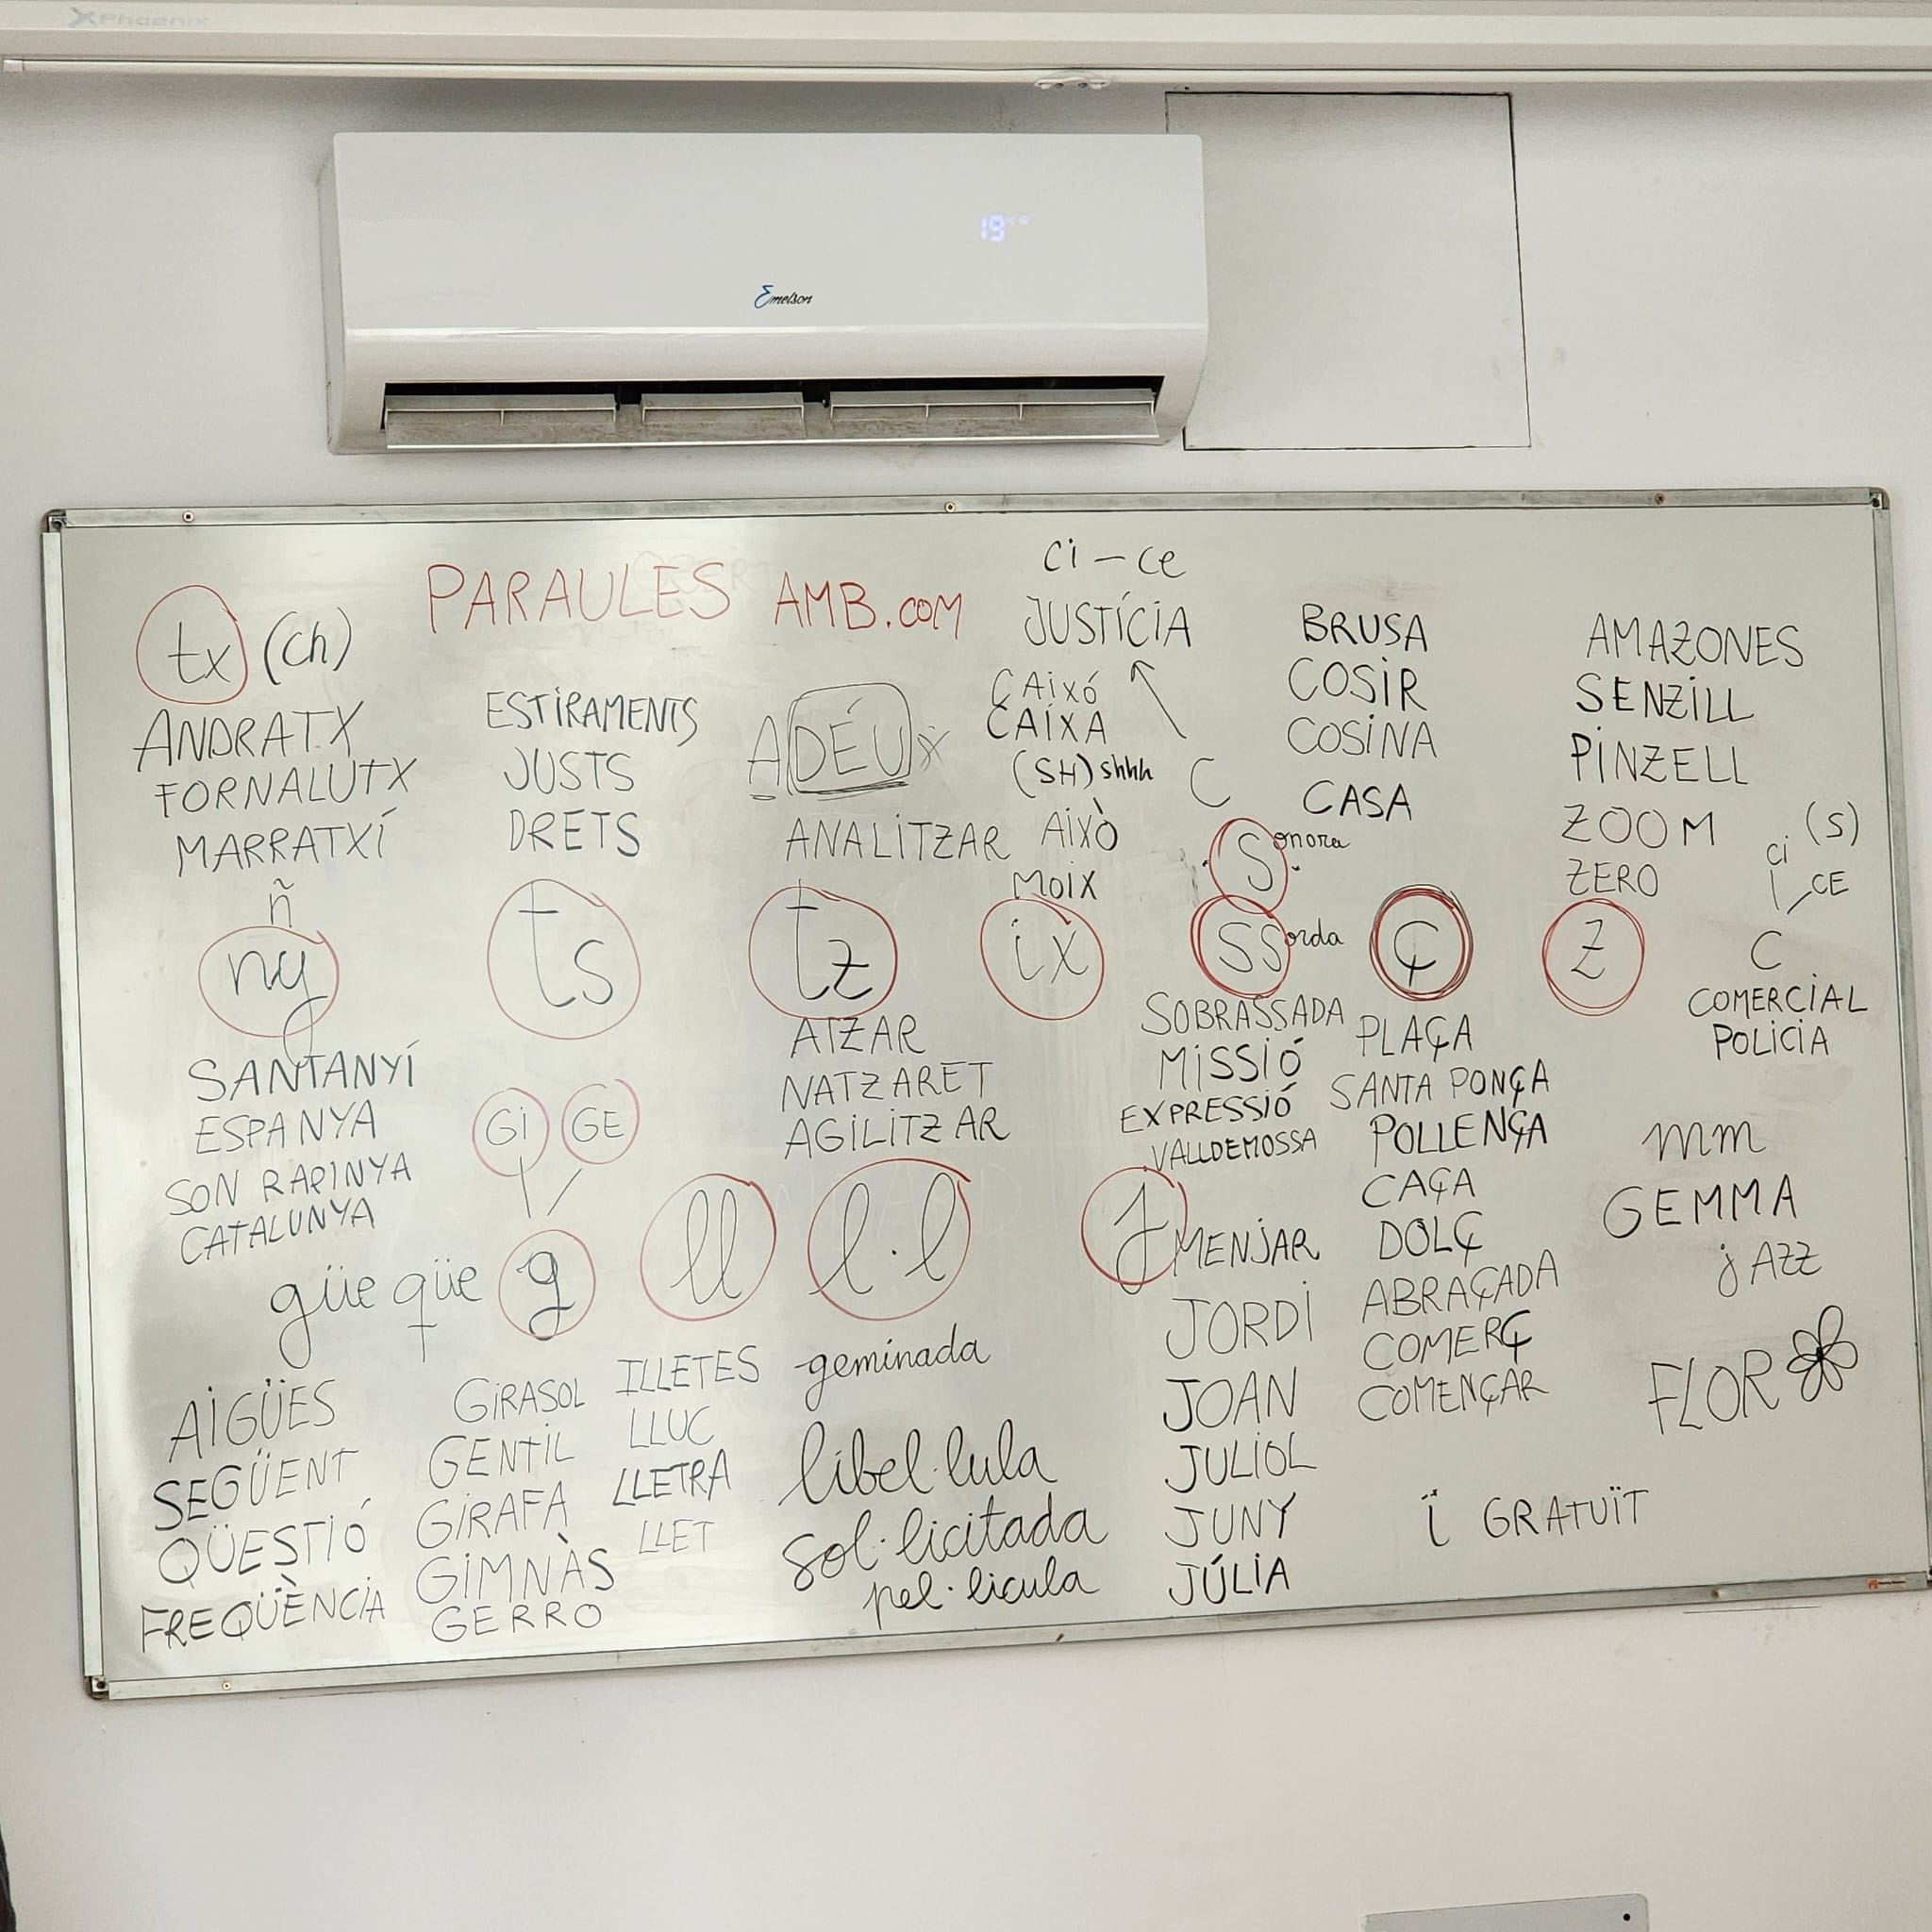 Phoenix
19°
Emelson
PARAULES AMB.COM
tx (ch)
ANDRATX
FORNALUTX
MARRATXÍ
ñ
ny
SANTANYÍ
ESPANYA
SON RAPINYA
CATALUNYA
ESTIRAMENTS
JUSTS
DRETS
ts
ADÉU
ANALITZAR
tz
ATZAR
NATZARET
AGILITZAR
ci - ce
JUSTÍCIA
CAIXÓ
CAIXA
(SH) shhh
AIXÒ
MOIX
ix
C
BRUSA
COSIR
COSINA
CASA
Sonora
SSorda
SOBRASSADA
MISSIÓ
EXPRESSIÓ
VALLDEMOSSA
Ç
PLAÇA
SANTA PONÇA
POLLENÇA
CAÇA
DOLÇ
ABRAÇADA
COMERÇ
COMENÇAR
AMAZONES
SENZILL
PINZELL
ZOOM
ZERO
Z
(S)
ci CE
C
COMERCIAL
POLICIA
güe qüe
AIGÜES
SEGÜENT
QÜESTIÓ
FREQÜÈNCIA
GI GE
g
GIRASOL
GENTIL
GIRAFA
GIMNÀS
GERRO
ll
ILLETES
LLUC
LLETRA
LLET
l·l
geminada
libel·lula
sol·licitada
pel·licula
J
MENJAR
JORDI
JOAN
JULIOL
JUNY
JÚLIA
mm
GEMMA
jAZZ
FLOR
ï GRATUÏT